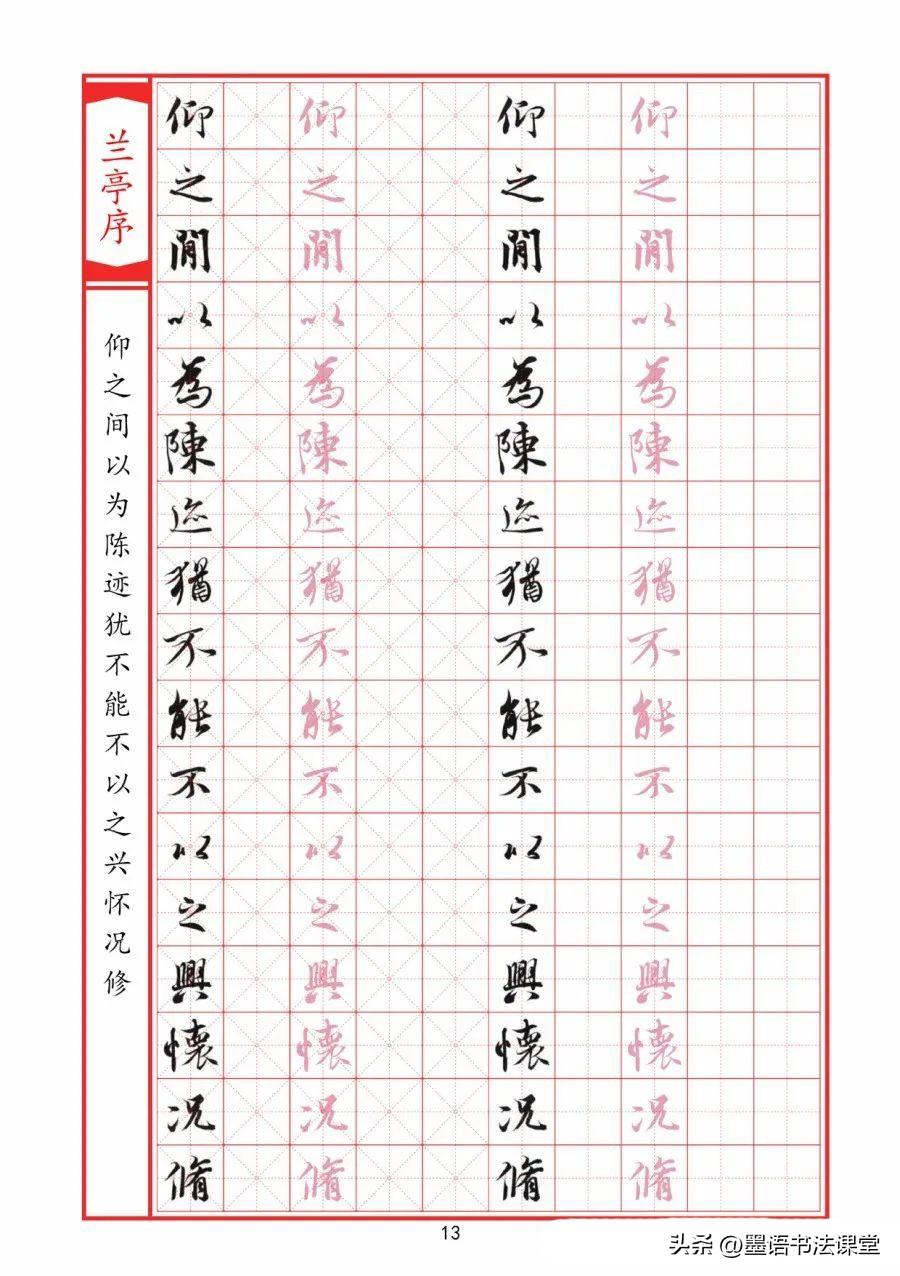 兰亭序
仰之间以为陈迹犹不能不以之兴怀况修
仰 仰 仰 仰
之 之 之 之
間 間 間 間
以 以 以 以
為 為 為 為
陳 陳 陳 陳
迹 迹 迹 迹
猶 猶 猶 猶
不 不 不 不
能 能 能 能
不 不 不 不
以 以 以 以
之 之 之 之
興 興 興 興
懷 懷 懷 懷
况 况 况 况
脩 脩 脩 脩
13
头条 @墨语书法课堂